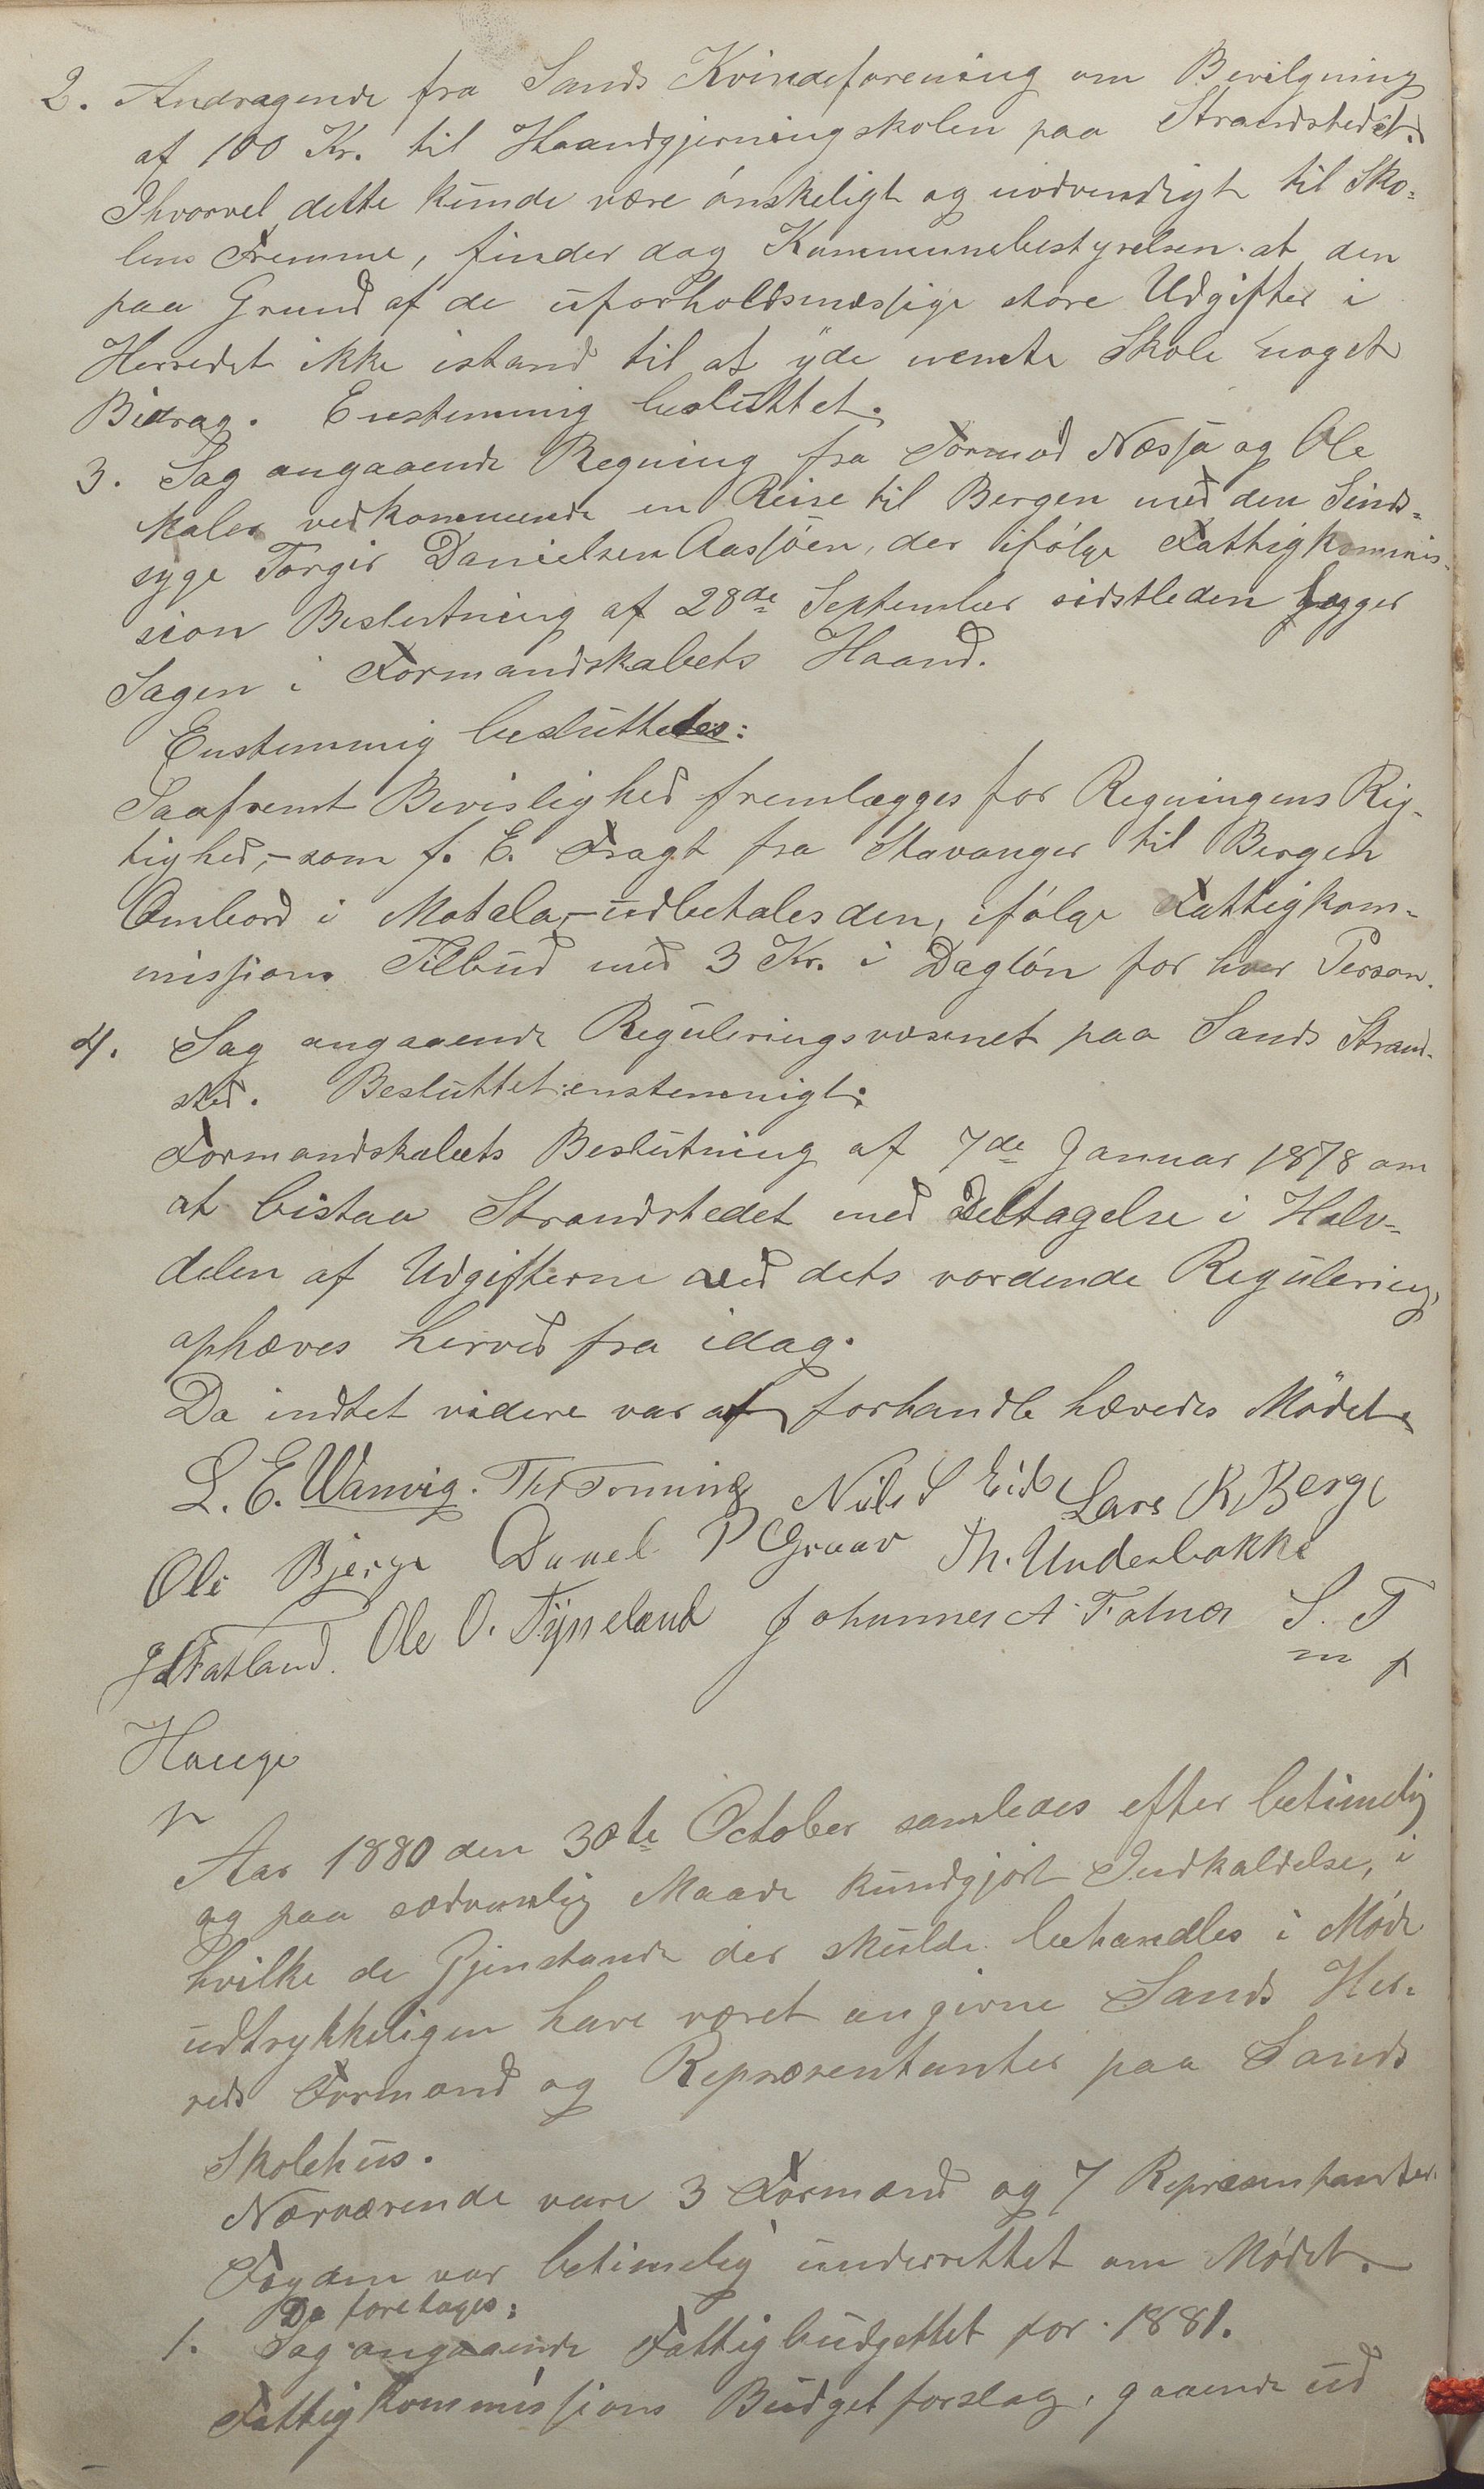 2. Andragende fra Sands Kvindeforening om Bevilgning
af 100 Kr. til Haandgjerningskolen paa Strandstedet.
Ihvorvel dette kunde være ønskeligt og nødvendigt til Sko-
lens Fremme, finder dog Kommunebestyrelsen at den
paa Grund af de uforholdsmæssige store Udgifter i
Herredet ikke istand til at yde nevnte Skole noget
Bidrag. Enstemmig besluttet.
3. Sag angaaende Regning fra Tormod Næssja og Ole
Maler vedkommende en Reise til Bergen med den Sinds-
syge Torgir Danielsen Aasjøen, der ifølge Fattigkommis-
sion Beslutning af 28de September sidstleden lægger
Sagen i Formandskabets Haand.
Enstemmig besluttedes:
Saafremt Bevislighed fremlægges for Regningens Rig-
tighed, - som f. E. Fragt fra Stavanger til Bergen
Ombord i Motala, - udbetales den, ifølge Fattigkom-
missions Tilbud med 3 Kr. i Dagløn for hver Person.
4. Sag angaaende Reguleringsvæsenet paa Sands Strand-
sted. Besluttet enstemmigt:
Formandskabets Beslutning af 7de Januar 1878 om
at bistaa Strandstedet med Deltagelse i Halv-
delen af Udgifterne ved dets vordende Regulering,
ophæves herved fra idag.
Da indtet videre var at forhandle hævedes Mødet.
L. E. Wanvig. Th. Tonning Nils S Eide Lars R. Berge
Ole Bjerge Danel P Graav Th. Underbakke
J Fatland. Ole O. Tysseland Johannes A. Fatnes S. T
m p
Hauge
Aar 1880 den 30te October samledes efter betimelig
og paa sædvanlig Maade kundgjort Indkaldelse, i
hvilke de Gjenstande der skulde behandles i Møde
udtrykkeligen have været angivne Sands Her-
reds Formænd og Repræsentanter paa Sands
Skolehus.
Nærværende vare 3 Formænd og 7 Repræsentanter.
Fogden var betimelig underrettet om Mødet.
Da foretages:
1. Sag angaaende Fattigbudgettet for 1881.
Fattigkommissions Budgetforslag, gaaende ud